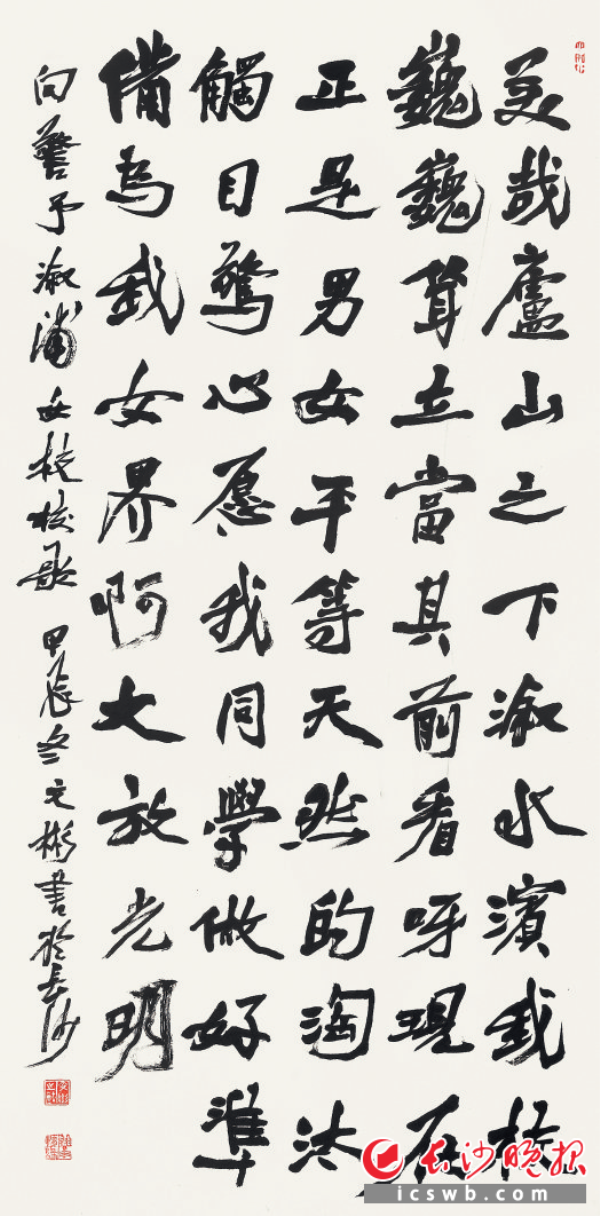 美哉廬山之下溆水濱我校
巍巍聳立當其前看呀現在
正是男女平等天然的淘汰
觸目驚心愿我同學做好準
備為我女界啊大放光明
向警予溆浦女校校歌 甲辰冬文彬書於長沙
长沙晚报
icswb.com